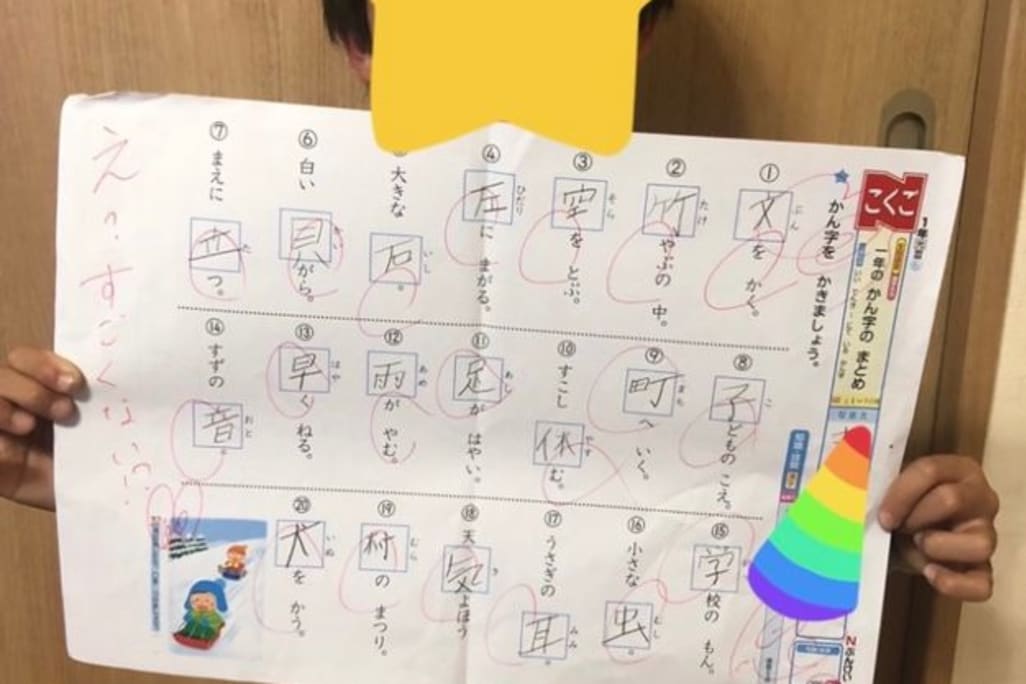 こくご
1年
一年の かん字の まとめ
かん字を かきましょう。
① 文を かく。
ぶん
② 竹やぶの 中。
たけ
③ 空を とぶ。
そら
④ 左に まがる。
ひだり
大きな 石。
いし
⑥ 白い 貝がら。
かい
⑦ まえに 立つ。
た
⑧ 子どもの こえ。
こ
⑨ 町へ いく。
まち
⑩ すこし 休む。
やす
⑪ 足が はやい。
あし
⑫ 雨が やむ。
あめ
⑬ 早く ねる。
はや
⑭ すずの 音。
おと
⑮ 学校の もん。
⑯ 小さな 虫。
むし
⑰ うさぎの 耳。
みみ
⑱ 天気よほう
き
⑲ 村の まつり。
むら
⑳ 犬を かう。
いぬ
えっ、すごくない!?